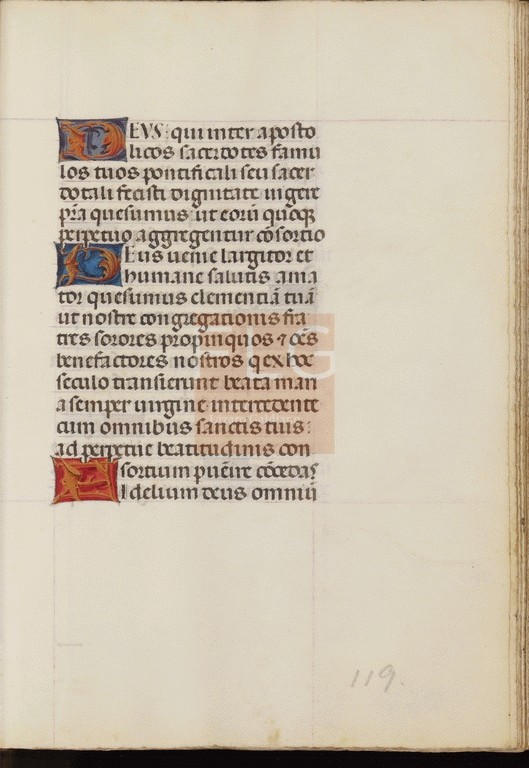 DEVS: qui inter aposto
licos sacerdotes famu
los tuos pontificali seu sacer
dotali fecisti dignitate uigere
pr̄a quesumus: ut eorū quoqꝫ
perpetuo aggregentur cōsortio
Deus uenie largitor et
humane salutis ama
tor quesumus clementiā tuā
ut nostre congregationis fra
tres sorores propinquos ⁊ oēs
benefactores nostros q ex hoc
seculo transierunt beata mari
a semper uirgine intercedente
cum omnibus sanctis tuis:
ad perpetue beatitudinis con
sortium puēire cōcedas
Fidelium deus omniū
119.